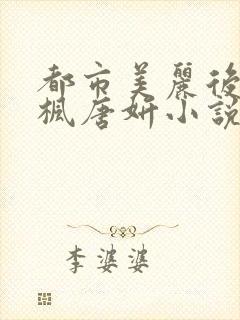 都市美麗後
楓唐妍小説
李婆婆